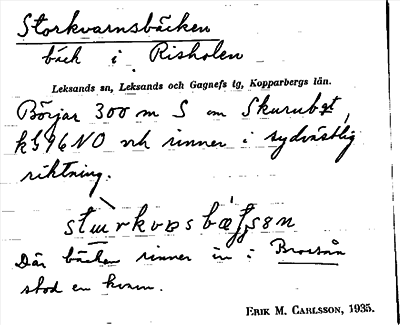 Storkvarnsbäcken
bäck i Risholen
Leksands sn, Leksands och Gagnefs tg, Kopparbergs län.
Börjar 300 m S om
96 NO och rinner i sydvästlig
riktning.
Där bäcken rinner in i Brossån
stod en kvarn.
ERIK M. CARLSSON, 1935.